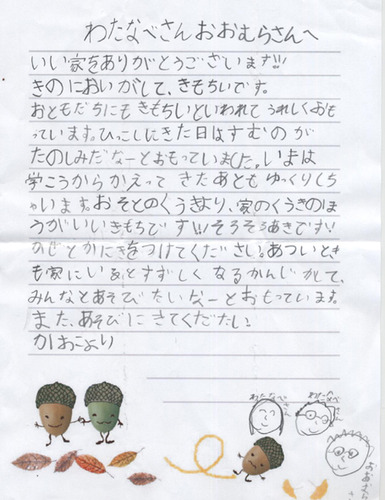 わたなべさんおおむらさんへ
いい家をありがとうございます!!!
きのにおいがして、きもちいです。
おともだちにもきもちいといわれてうれしくおも
っています。ひっこしにきた日はすむのが
たのしみだなーとおもっていました。いまは
学こうからかえってきたあともゆっくりしち
ゃいます。おそとのくうきより、家のくうきのほ
うがいいきもちです!!!そろそろあきです!!
のどとかにきをつけてください。あついとき
も家にいるとすずしくなるかんじがして、
みんなとあそびたいなーとおもっています。
また、あそびにきてください
かおこより
わたなべ
さん
わたなべ
さん
おおむらさん